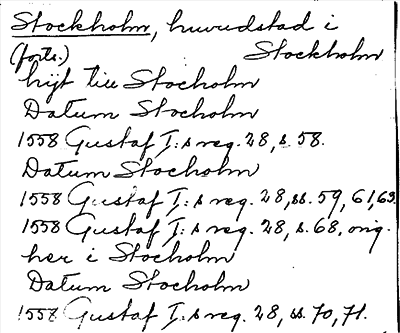 Stockholm, huvudstad i
(forts.) Stockholm
hijt till Stocholm
Datum Stocholm
1558 Gustaf I:s reg. 28, s. 58.
Datum Stocholm
1558 Gustaf I:s reg. 28, ss. 59, 61, 63.
1558 Gustaf I:s reg. 28, s. 68, orig.
her i Stocholm
Datum Stocholm
1558 Gustaf I:s reg. 28, ss. 70, 71.